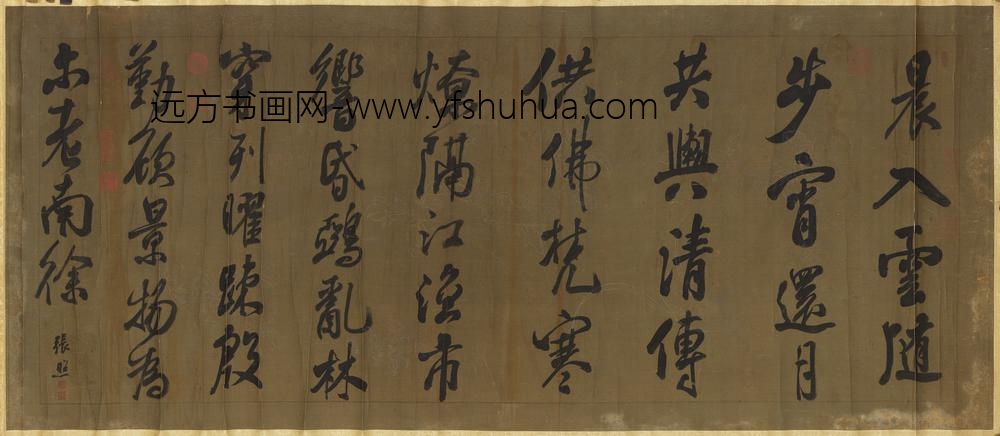 晨入雲隨
步宵還月
共輿清傳
供佛梵寒
燎隔江漁市
響昏鵶亂林
窠列曜疎殷
勤頋景物為
尔老南徐
張照
远方书画网 www.yfshuhua.com